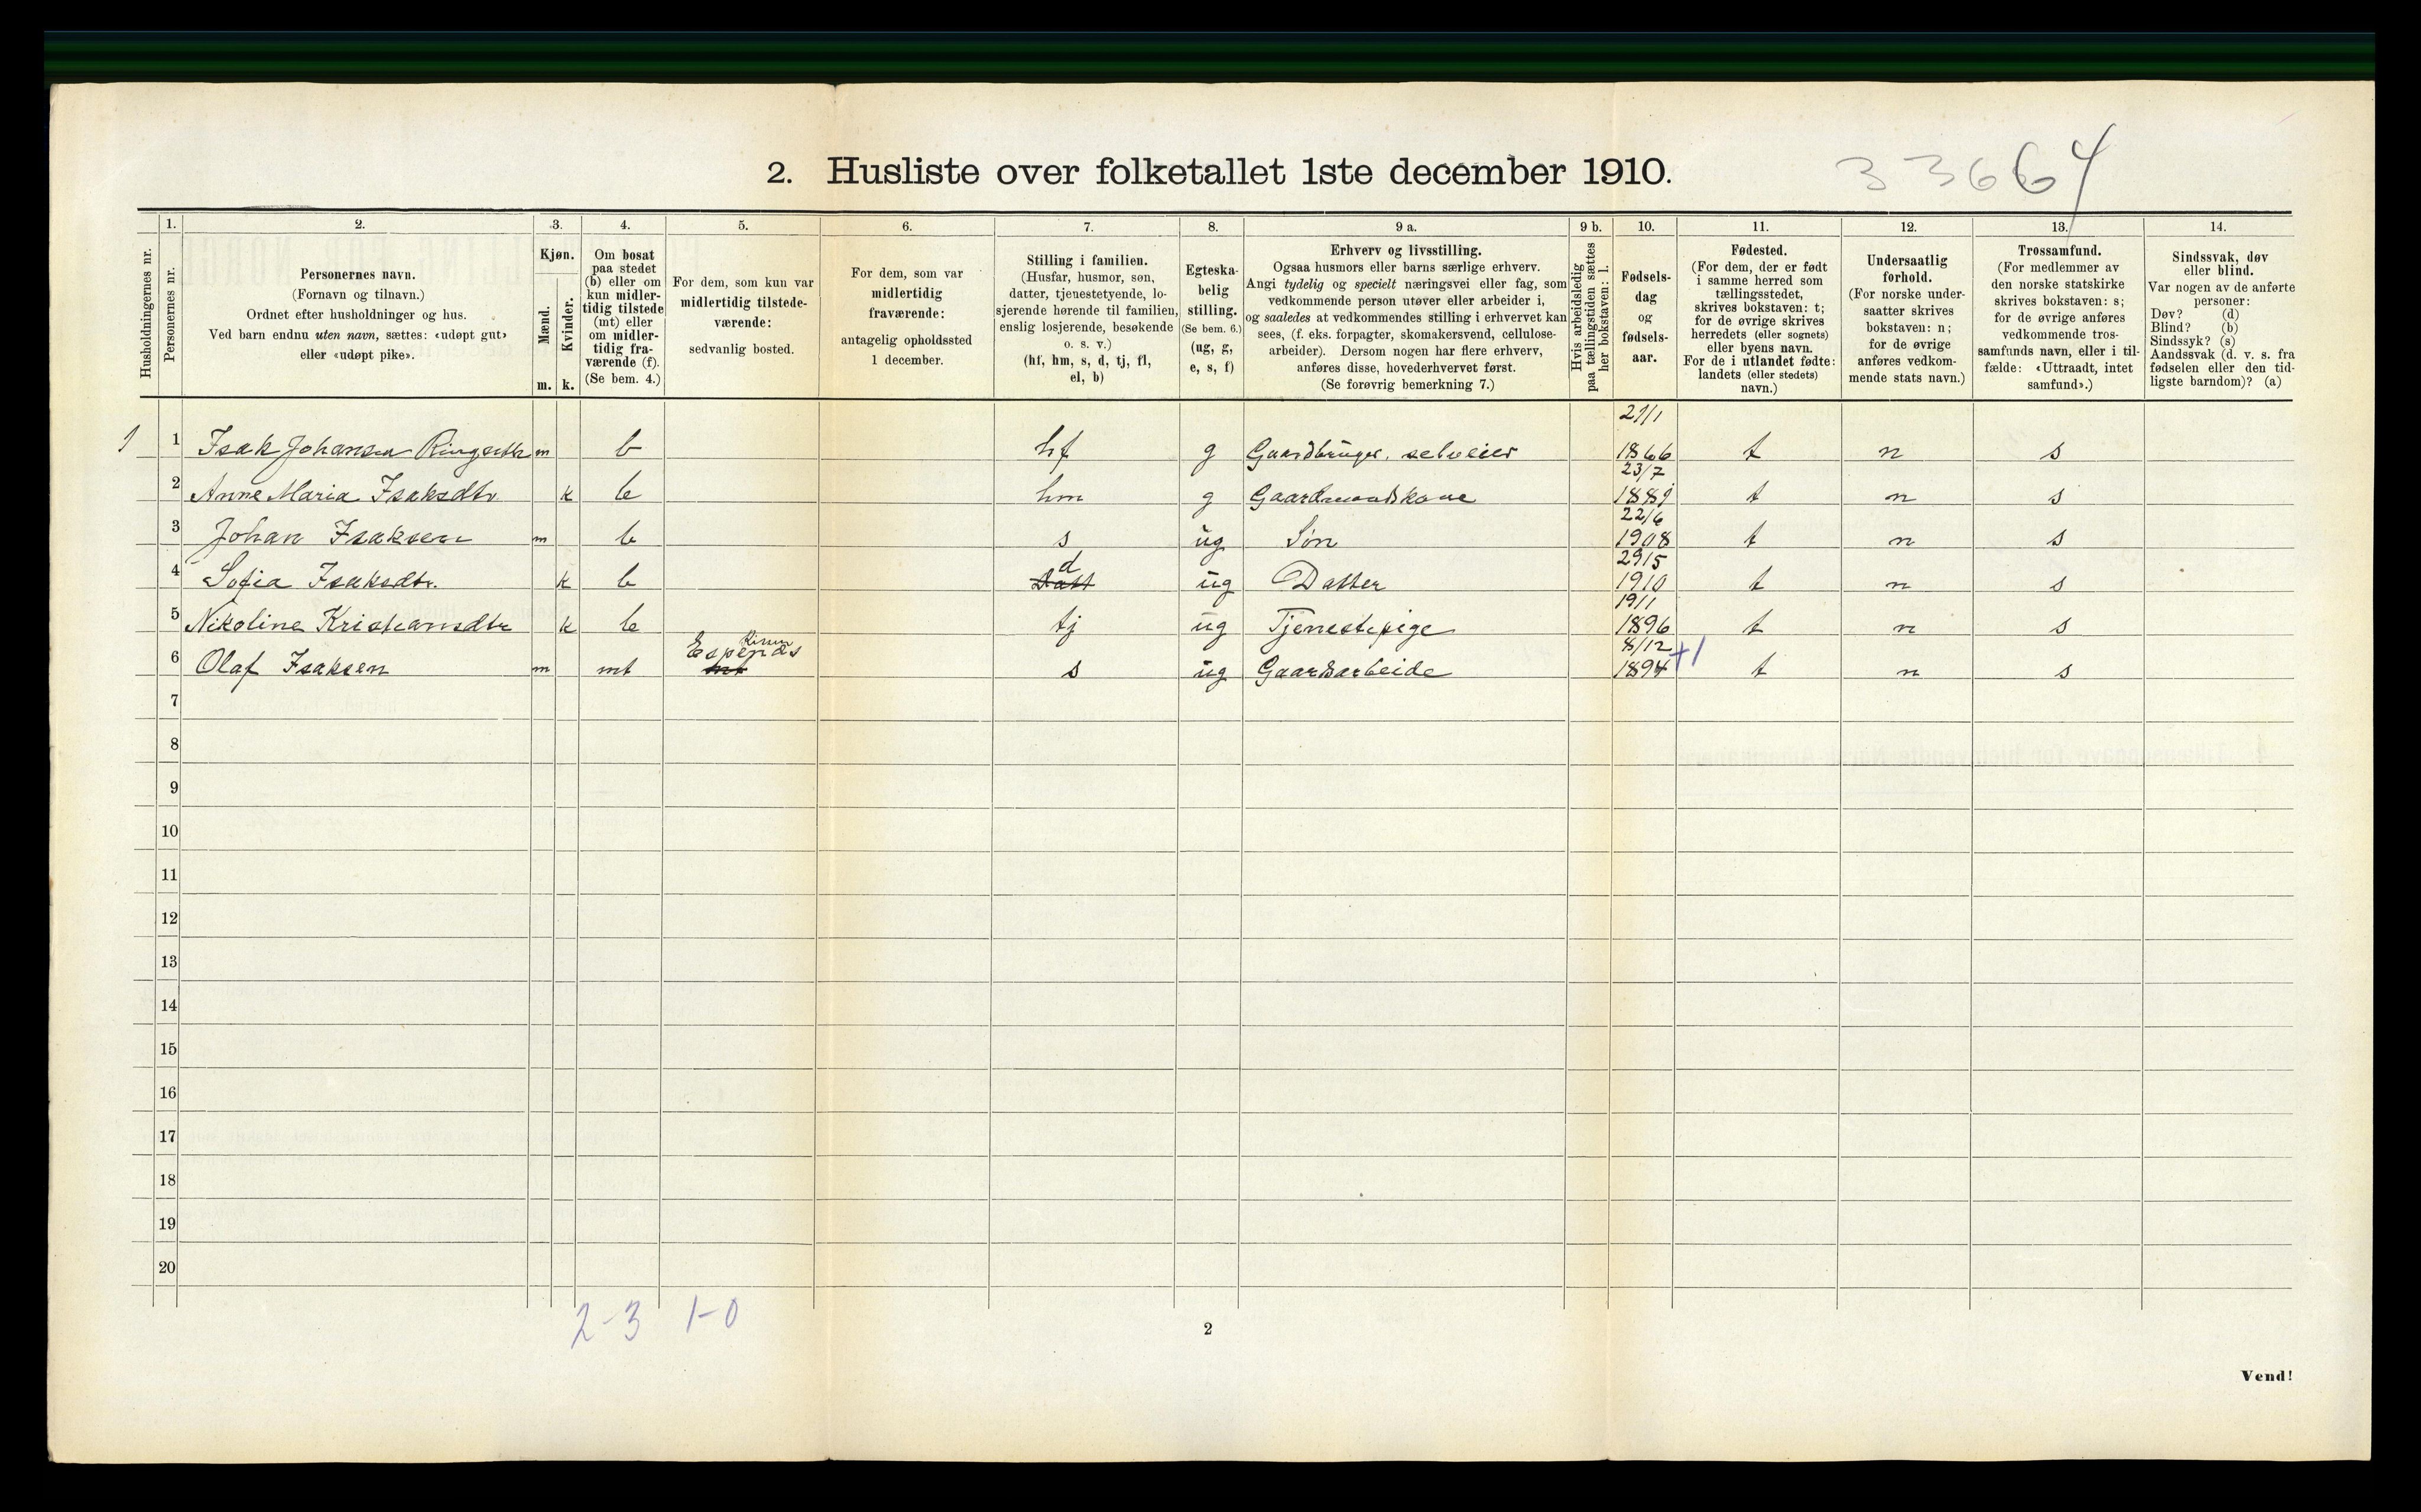 33664
2. Husliste over folketallet 1ste december 1910.
Husholdningernes nr.
1.
Personernes nr.
2.
Personernes navn.
(Fornavn og tilnavn.)
Ordnet efter husholdninger og hus.
Ved barn endnu uten navn, sættes: «udøpt gut»
eller «udøpt pike».
3.
Kjøn.
Mænd.
Kvinder.
m. k.
4.
Om bosat
paa stedet
(b) eller om
kun midler-
tidig tilstede
(mt) eller
om midler-
tidig fra-
værende (f).
(Se bem. 4.)
5.
For dem, som kun var
midlertidig tilstede-
værende:
sedvanlig bosted.
6.
For dem, som var
midlertidig
fraværende:
antagelig opholdssted
1 december.
7.
Stilling i familien.
(Husfar, husmor, søn,
datter, tjenestetyende, lo-
sjerende hørende til familien,
enslig losjerende, besøkende
o. s. v.)
(hf, hm, s, d, tj, fl,
el, b)
8.
Egteska-
belig
stilling.
(Se bem. 6.)
(ug, g,
e, s, f)
9 a.
Erhverv og livsstilling.
Ogsaa husmors eller barns særlige erhverv.
Angi tydelig og specielt næringsvei eller fag, som
vedkommende person utøver eller arbeider i,
og saaledes at vedkommendes stilling i erhvervet kan
sees, (f. eks. forpagter, skomakersvend, cellulose-
arbeider). Dersom nogen har flere erhverv,
anføres disse, hovederhvervet først.
(Se forøvrig bemerkning 7.)
9 b.
Hvis arbeidsledig
paa tællingstiden sættes
her bokstaven: l.
10.
Fødsels-
dag
og
fødsels-
aar.
11.
Fødested.
(For dem, der er født
i samme herred som
tællingsstedet,
skrives bokstaven: t;
for de øvrige skrives
herredets (eller sognets)
eller byens navn.
For de i utlandet fødte:
landets (eller stedets)
navn.)
12.
Undersaatlig
forhold.
(For norske under-
saatter skrives
bokstaven: n;
for de øvrige
anføres vedkom-
mende stats navn.)
13.
Trossamfund.
(For medlemmer av
den norske statskirke
skrives bokstaven: s;
for de øvrige anføres
vedkommende tros-
samfunds navn, eller i til-
fælde: «Uttraadt, intet
samfund».)
14.
Sindssvak, døv
eller blind.
Var nogen av de anførte
personer:
Døv? (d)
Blind? (b)
Sindssyk? (s)
Aandssvak (d. v. s. fra
fødselen eller den tid-
ligste barndom)? (a)
1 1 Isak Johansen m b hf g Gaardbruger, selveier 1866 t n s
2 Anne Maria Isaksdtr k b hm g Gaardmandskone 23/7 t n s
3 Johan Isaksen m b s ug Søn 22/6 1908 t n s
4 Sofia Isaksdtr. k b Datt d ug Datter 29/5 1910 t n s
5 Nikoline Kristiansdtr k b tj ug Tjenestepige 19/1 1896 t n s
6 Olaf Isaksen m mt mt s ug Gaardsarbeide 8/12 1894 +1 t n s
7
8
9
10
11
12
13
14
15
16
17
18
19
20
2-3 1-0
2
Vend!